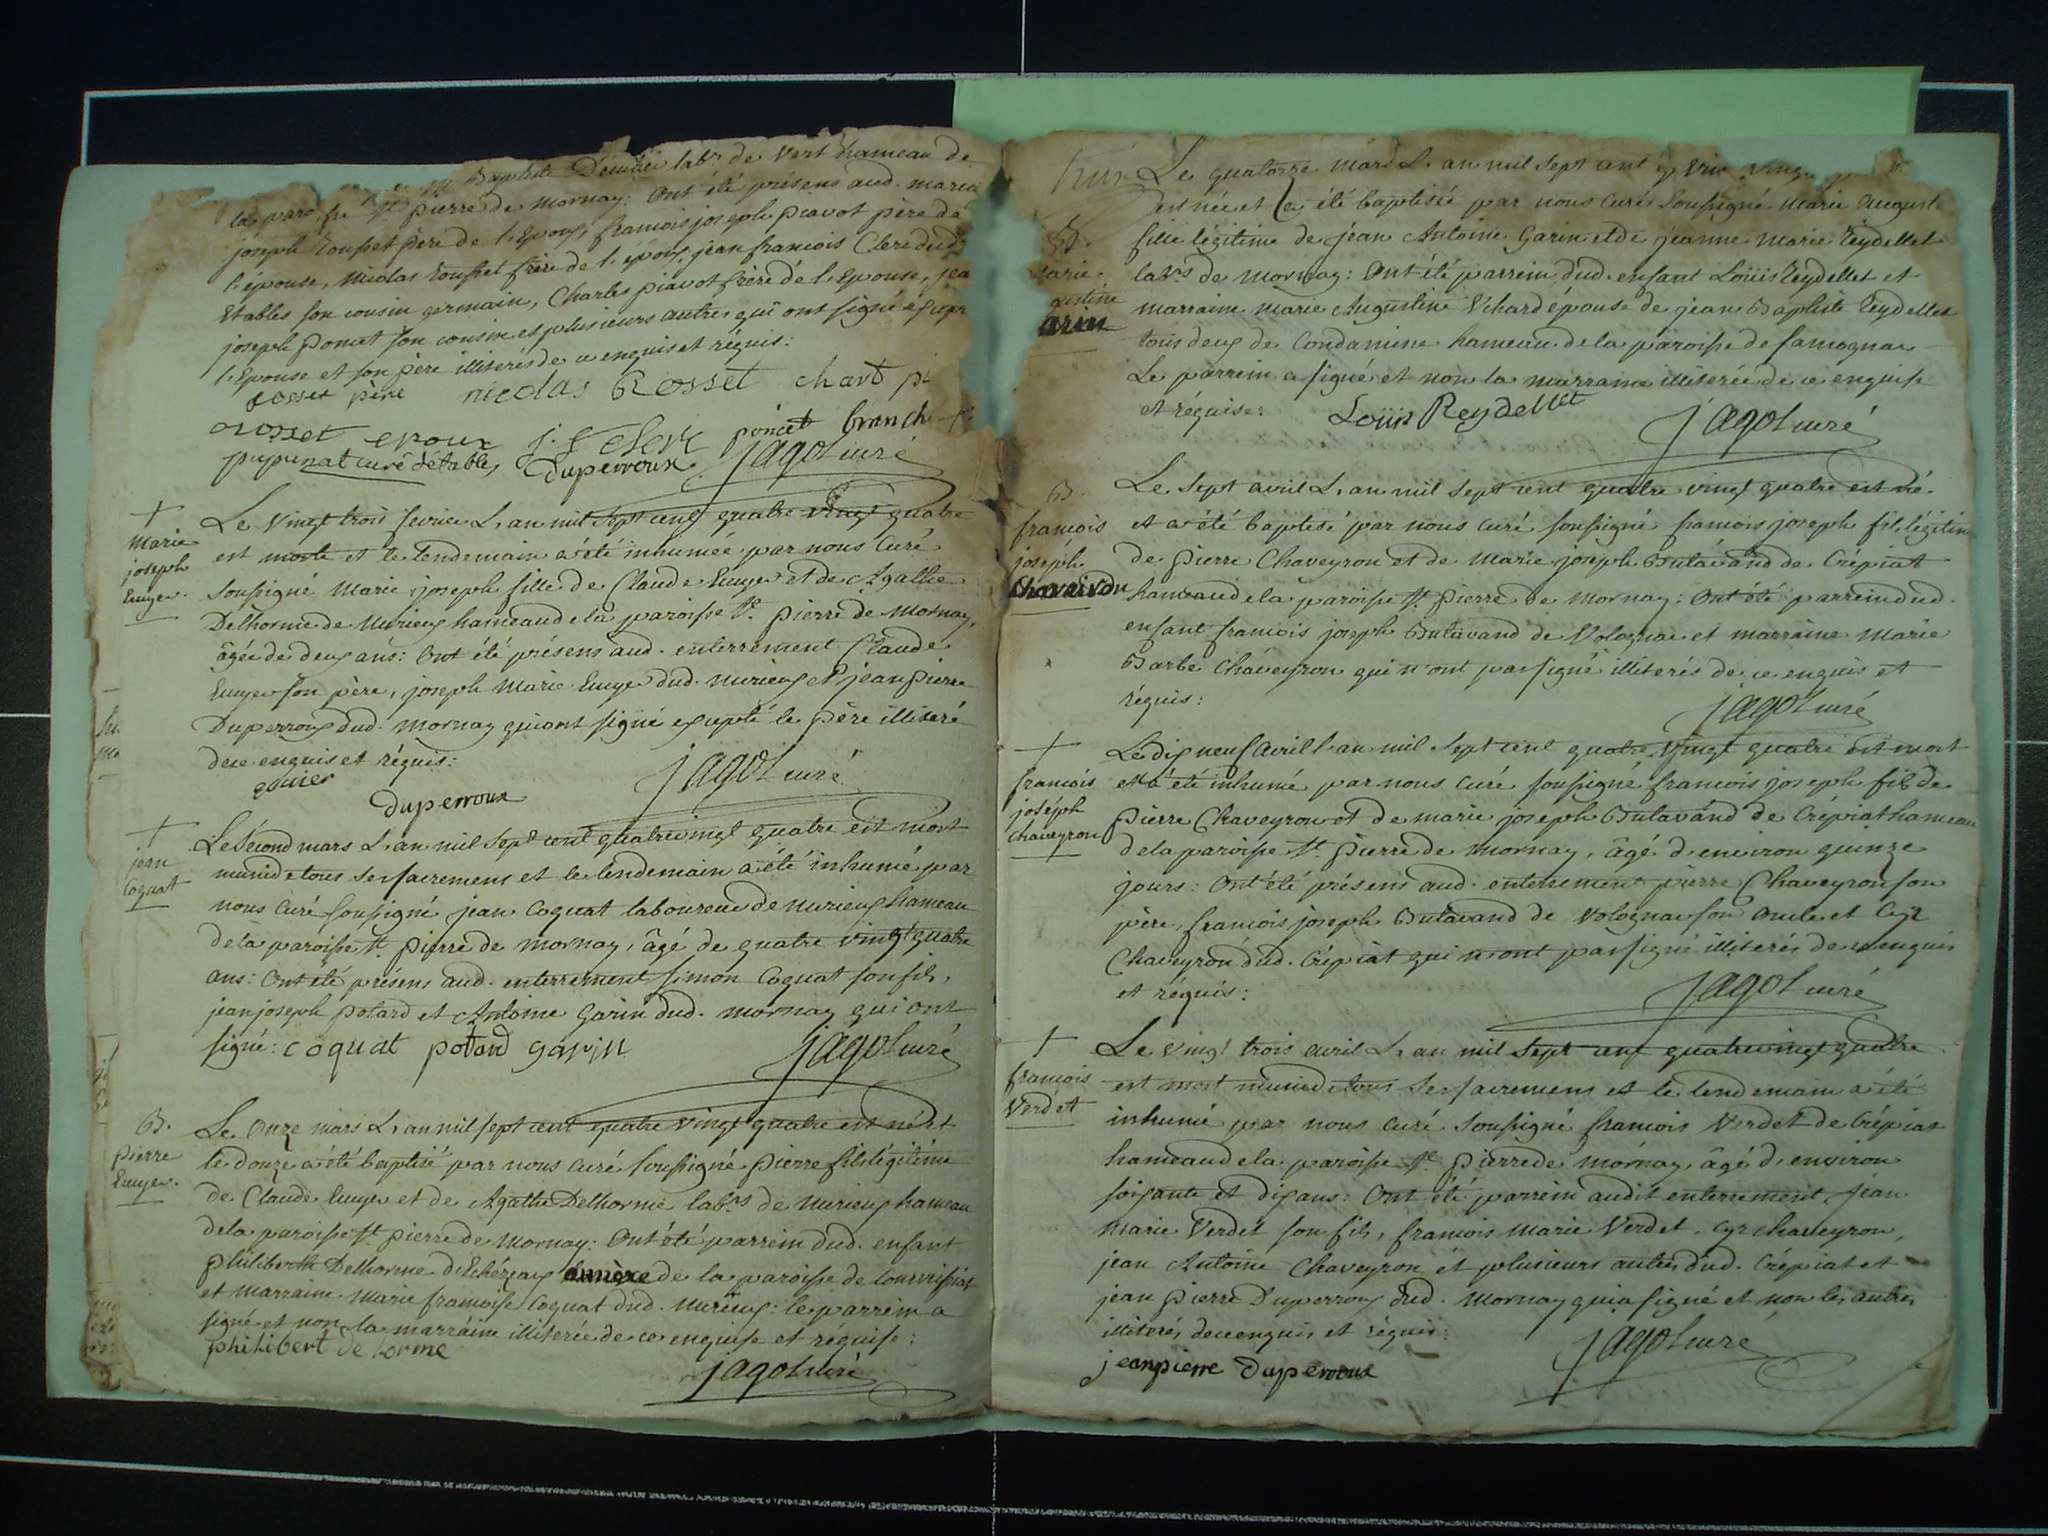 Baptiste Deudée labr. de Vers hameau de
la paroisse St. pierre de mornay: Ont été présens aud. maria
joseph Rousset père de l'époux, francois joseph piavot père de
l'épouse, Nicolas rousset frère de l'époux, jean francois Clerc dud.
Etables son cousin germain, Charles piavot frère de l'Epouse, jea
joseph poncet son cousin et plusieurs autres qui ont signé excepté
l'épouse et son père illiterés de ce enquis et réquis:
rosset père nicolas Rosset chart pi
rosset epoux j. f Clerc poncet branche
pupunat curé d'étables Duperroux jagot curé
+
marie
joseph
Euyer.
Le Vingt trois fevrier L'an mil sept cent quatre vingt quatre
est morte et le lendemain a été inhumée par nous Curé
soussigné Marie joseph fille de Claude Euyer et de Agathe
Delhorme de Nurieux hameau de la paroisse St. pierre de mornay,
âgée de deux ans: Ont été présens aud. enterrement Claude
Euyer son père, joseph marie Euyer dud. nurieux et jean pierre
Duperroux dud. mornay qui ont signé excepté le père illiteré
de ce enquis et réquis:
equier
Duperroux jagot curé
+
jean
Coquat
Le Second mars L'an mil sept cent quatrevingt quatre est mort
muni de tous ses sacremens et le lendemain a été inhumé par
nous Curé soussigné jean Coquat laboureur de nurieux hameau
de la paroisse St. pierre de mornay, âgé de quatre vingt quatre
ans: Ont été présens aud. enterrement simon Coquat son fils,
jean joseph potard et Antoine Garin dud. mornay qui ont
signé: coquat potard garin jagot curé
B.
pierre
Euyer.
Le Onze mars L'an mil sept cent quatre vingt quatre est né et
le douze a été baptisé par nous curé soussigné pierre fils légitime
de Claude Euyer et de Agathe Delhorme labrs. de nurieux hameau
de la paroisse St pierre de mornay: Ont été parrein dud. enfant
philiberth Delhorme d'Echézeaux de la paroisse de
et marraine marie francoise Coquat dud. nurieux: le parrein a
signé et non la marraine illiterée de ce enquise et réquise:
philibert de lorme
jagot curé
Le quatorze mars L'an mil sept cent quatre vingt
est née et a été baptisée par nous curé soussigné marie August
fille légitime de jean Antoine Garin et de jeanne marie Reydellet
labrs de mornay: Ont été parrein dud. enfant Loüis Reydellet et
marraine marie Augustine Vchard épouse de jean Baptiste Reydellet
tous deux de Condamine hameau de la paroisse de samognac
Le parrein a signé et non la marraine illiterée de ce enquise
et réquise: Loüis Reydellet jagot curé
B.
marie
gustine
arin
B.
francois
joseph
Chaveyron
Le Sept avril L'an mil sept cent quatre vingt quatre est né
et a été baptisé par nous curé soussigné francois joseph fils légitime
de pierre Chaveyron et de marie joseph Butavand de Crépiat
hameau de la paroisse St. pierre de mornay: Ont été parrein dud.
enfant francois joseph Butavand de Volognac et marraine Marie
Barbe Chaveyron qui n'ont pas signé illiterés de ce enquis et
réquis: jagot curé
+
francois
joséph
chaveyron
Le dix neuf avril l'an mil sept cent quatre vingt quatre est mort
et a été inhumé par nous curé soussigné francois joseph fils de
pierre Chaveyron et de marie joseph Butavand de Crépiat hameau
de la paroisse St. pierre de mornay, âgé d'environ quinze
jours: Ont été présens aud. enterrement pierre Chaveyron son
père, francois joseph Butavand de Volognac son Oncle et Cyr
Chaveyron dud. Crépiat qui n'ont pas signé illiterés de ce enquis
et réquis: jagot curé
+
francois
Verdet
Le vingt trois avril L'an mil sept cent quatrevingt quatre
est mort muni de tous ses sacremens et le lendemain a été
inhumé par nous curé soussigné francois Verdet de Crépiat
hameau de la paroisse St. pierre de mornay, âgé d'environ
soixante et dix ans: Ont été parrein audit enterrement jean
marie Verdet son fils, francois marie Verdet, Cyr chaveyron,
jean Antoine Chaveyron et plusieurs autres dud. Crépiat et
jean pierre Duperroux dud. mornay qui a signé et non les autres
illiterés de ce enquis et réquis: jagot curé
jeanpierre Duperroux